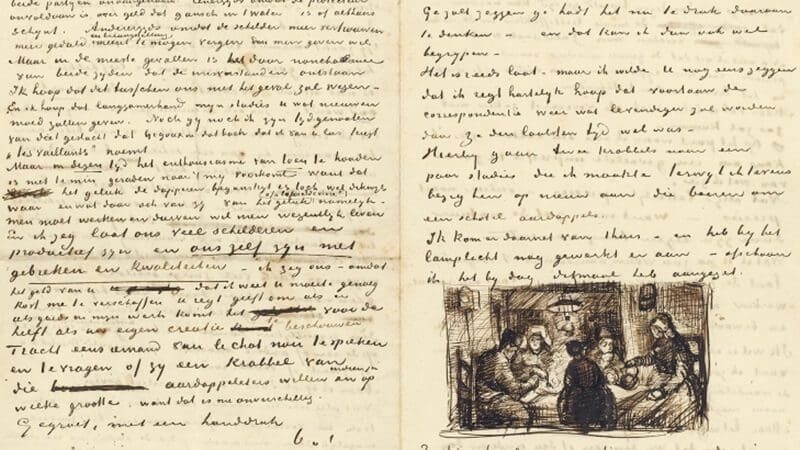 beide partijen
onvoldaan is over geld dat gansch in 't water is of althans
schijnt. Anderzijds omdat de schilder meer vertrouwen
meer geduld meent te mogen vergen dan men geven wil
Maar in de meeste gevallen is het door nonchalance
van beide zijden dat de misverstanden ontstaan
Ik hoop dat dit tusschen ons niet het geval zal wezen –
En ik hoop dat langzamerhand mijn studies U wat nieuwen
moed zullen geven. Noch gij noch ik zijn tijdgenooten
van dat geslacht dat Gigoux in dat boek dat ik van U las teregt
"les vaillants" noemt
Maar in dezen tijd het enthousiasme van toen te houden
is niet te min geraden naar 't mij voorkomt want dat
het geluk de dapperen begunstigt is toch wel dikwijls
waar en wat daar ook van zij van het geluk namelijk –
men moet werken en durven wil men wezentlijk leven
En ik zeg laat ons veel schilderen en
productief zijn en ons zelf zijn met
gebreken en kwaliteiten – ik zeg ons – omdat
het geld van U dat ik weet U moeite genoeg
kost me te verschaffen U regt geeft om als er
als goeds in mijn werk komt het voor de
helft als uw eigen creatie te beschouwen
Tracht eens iemand van le chat noir te spreken
en te vragen of zij een krabbel van
die aardappeleters willen en zoo
welke grootte. want dat is me onverschillig.
Gegroet, met een handdruk
Ge zult zeggen ge hadt het nu te druk daaraan
te denken – en dat kan ik dan ook wel
begrijpen –
Het is reeds laat – maar ik wilde U nog eens zeggen
dat ik regt hartelijk hoop dat voortaan de
correspondentie weer wat levendiger zal worden
dan ze den laatsten tijd wel was –
Hierbij gaan twee krabbels naar een
paar studies die ik maakte terwijl ik tevens
bezig ben op nieuw aan die boeren om
een schotel aardappels.
Ik kom er daarnet van thuis – en heb bij het
lamplicht nog gewerkt er aan – ofschoon
ik het bij dag ditmaal heb aangezet.